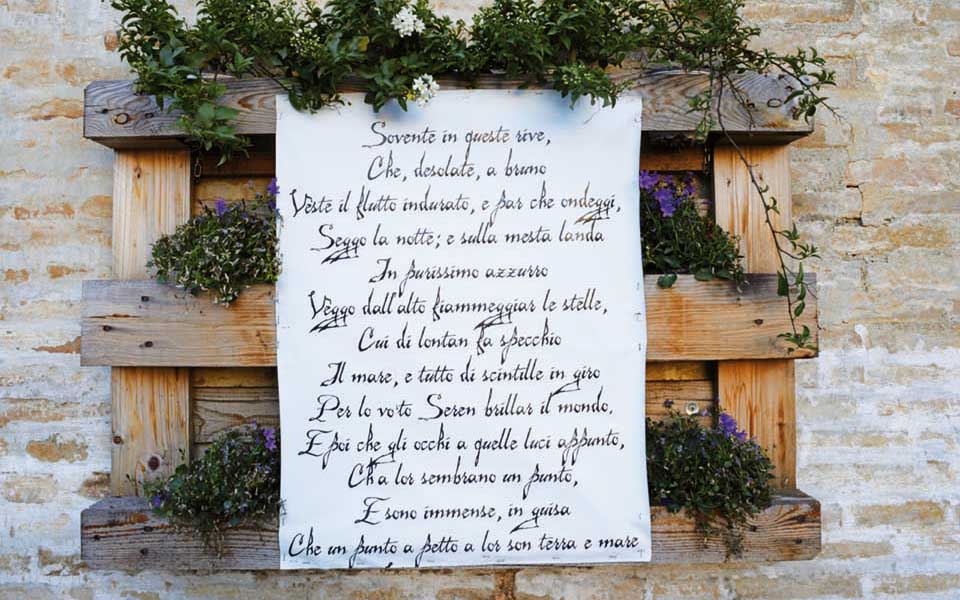 Sovente in queste rive,
Che, desolate, a bruno
Veste il flutto indurato, e par che ondeggi,
Seggo la notte; e sulla mesta landa
In purissimo azzurro
Veggo dall'alto fiammeggiar le stelle,
Cui di lontan fa specchio
Il mare, e tutto di scintille in giro
Per lo vo'to Seren brillar il mondo.
E poi che gli occhi a quelle luci appunto,
Ch'a lor sembrano un punto,
E sono immense, in guisa
Che un punto a petto a lor son terra e mare